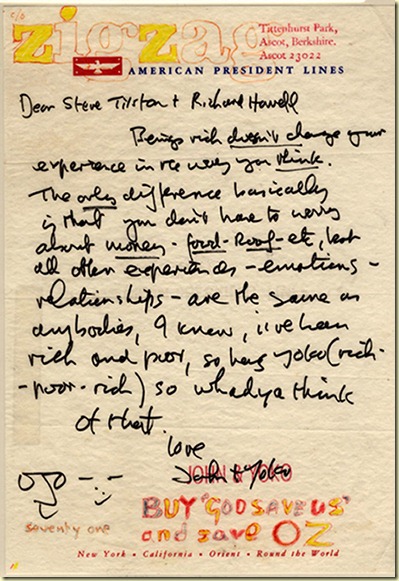 c/o
zigzag
Tittenhurst Park,
Ascot, Berkshire.
Ascot 23022
AMERICAN PRESIDENT LINES
Dear Steve Tilston + Richard Howell
Being rich doesn't change your
experience in the way you think.
The only difference basically
is that you don't have to worry
about money - food - Roof - etc, but
all other experiences - emotions -
relationships - are the same as
anybodies, I know, i've been
rich and poor, so has yoko (rich-
-poor-rich) so whadya think
of that.
love
John + Yoko
JOHN & YOKO
seventy one
BUY "GOD SAVE US"
and save OZ
New York • California • Orient • Round the World